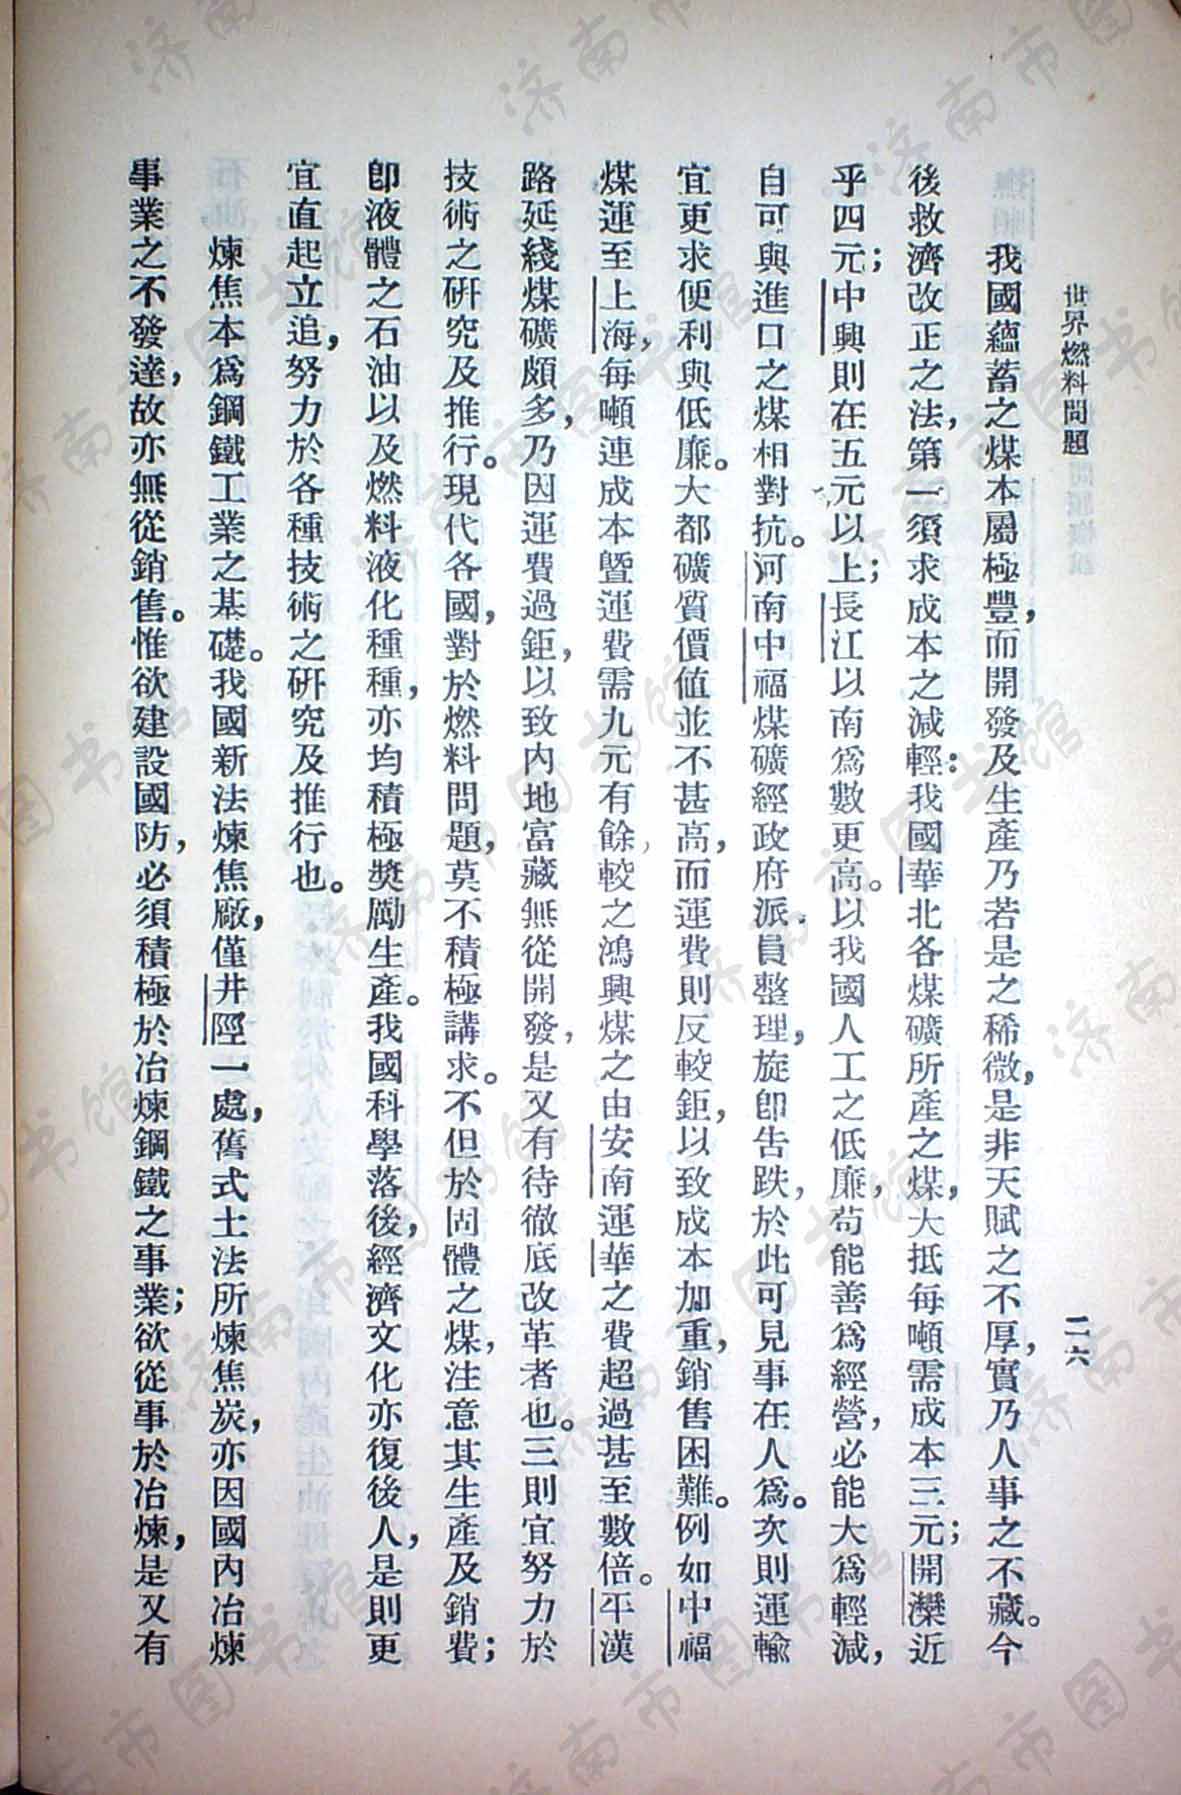 世界燃料問題
二六
我國蘊蓄之煤本屬極豐，而開發及生產乃若是之稀微，是非天賦之不厚，實乃人事之不藏。今
後救濟改正之法，第一須求成本之減輕：我國華北各煤礦所產之煤，大抵每噸需成本三元；開灤近
乎四元；中興則在五元以上；長江以南爲數更高。以我國人工之低廉，苟能善爲經營，必能大爲輕減，
自可與進口之煤相對抗。河南中福煤礦經政府派員整理，旋即告跌，於此可見事在人爲。次則運輸
宜更求便利與低廉。大都礦質價值並不甚高，而運費則反較鉅，以致成本加重，銷售困難。例如中福
煤運至上海，每噸連成本暨運費需九元有餘，較之鴻興煤之由安南運華之費超過甚至數倍。平漢
路延綫煤礦頗多，乃因運費過鉅，以致內地富藏無從開發，是又有待徹底改革者也。三則宜努力於
技術之研究及推行。現代各國，對於燃料問題，莫不積極講求。不但於固體之煤，注意其生產及銷費；
卽液體之石油以及燃料液化種種，亦均積極獎勵生產。我國科學落後，經濟文化亦復後人，是則更
宜直起立追，努力於各種技術之研究及推行也。
煉焦本爲鋼鐵工業之基礎。我國新法煉焦廠，僅井陘一處，舊式土法所煉焦炭，亦因國內冶煉
事業之不發達，故亦無從銷售。惟欲建設國防，必須積極於冶煉鋼鐵之事業；欲從事於冶煉，是又有
济南市图书馆